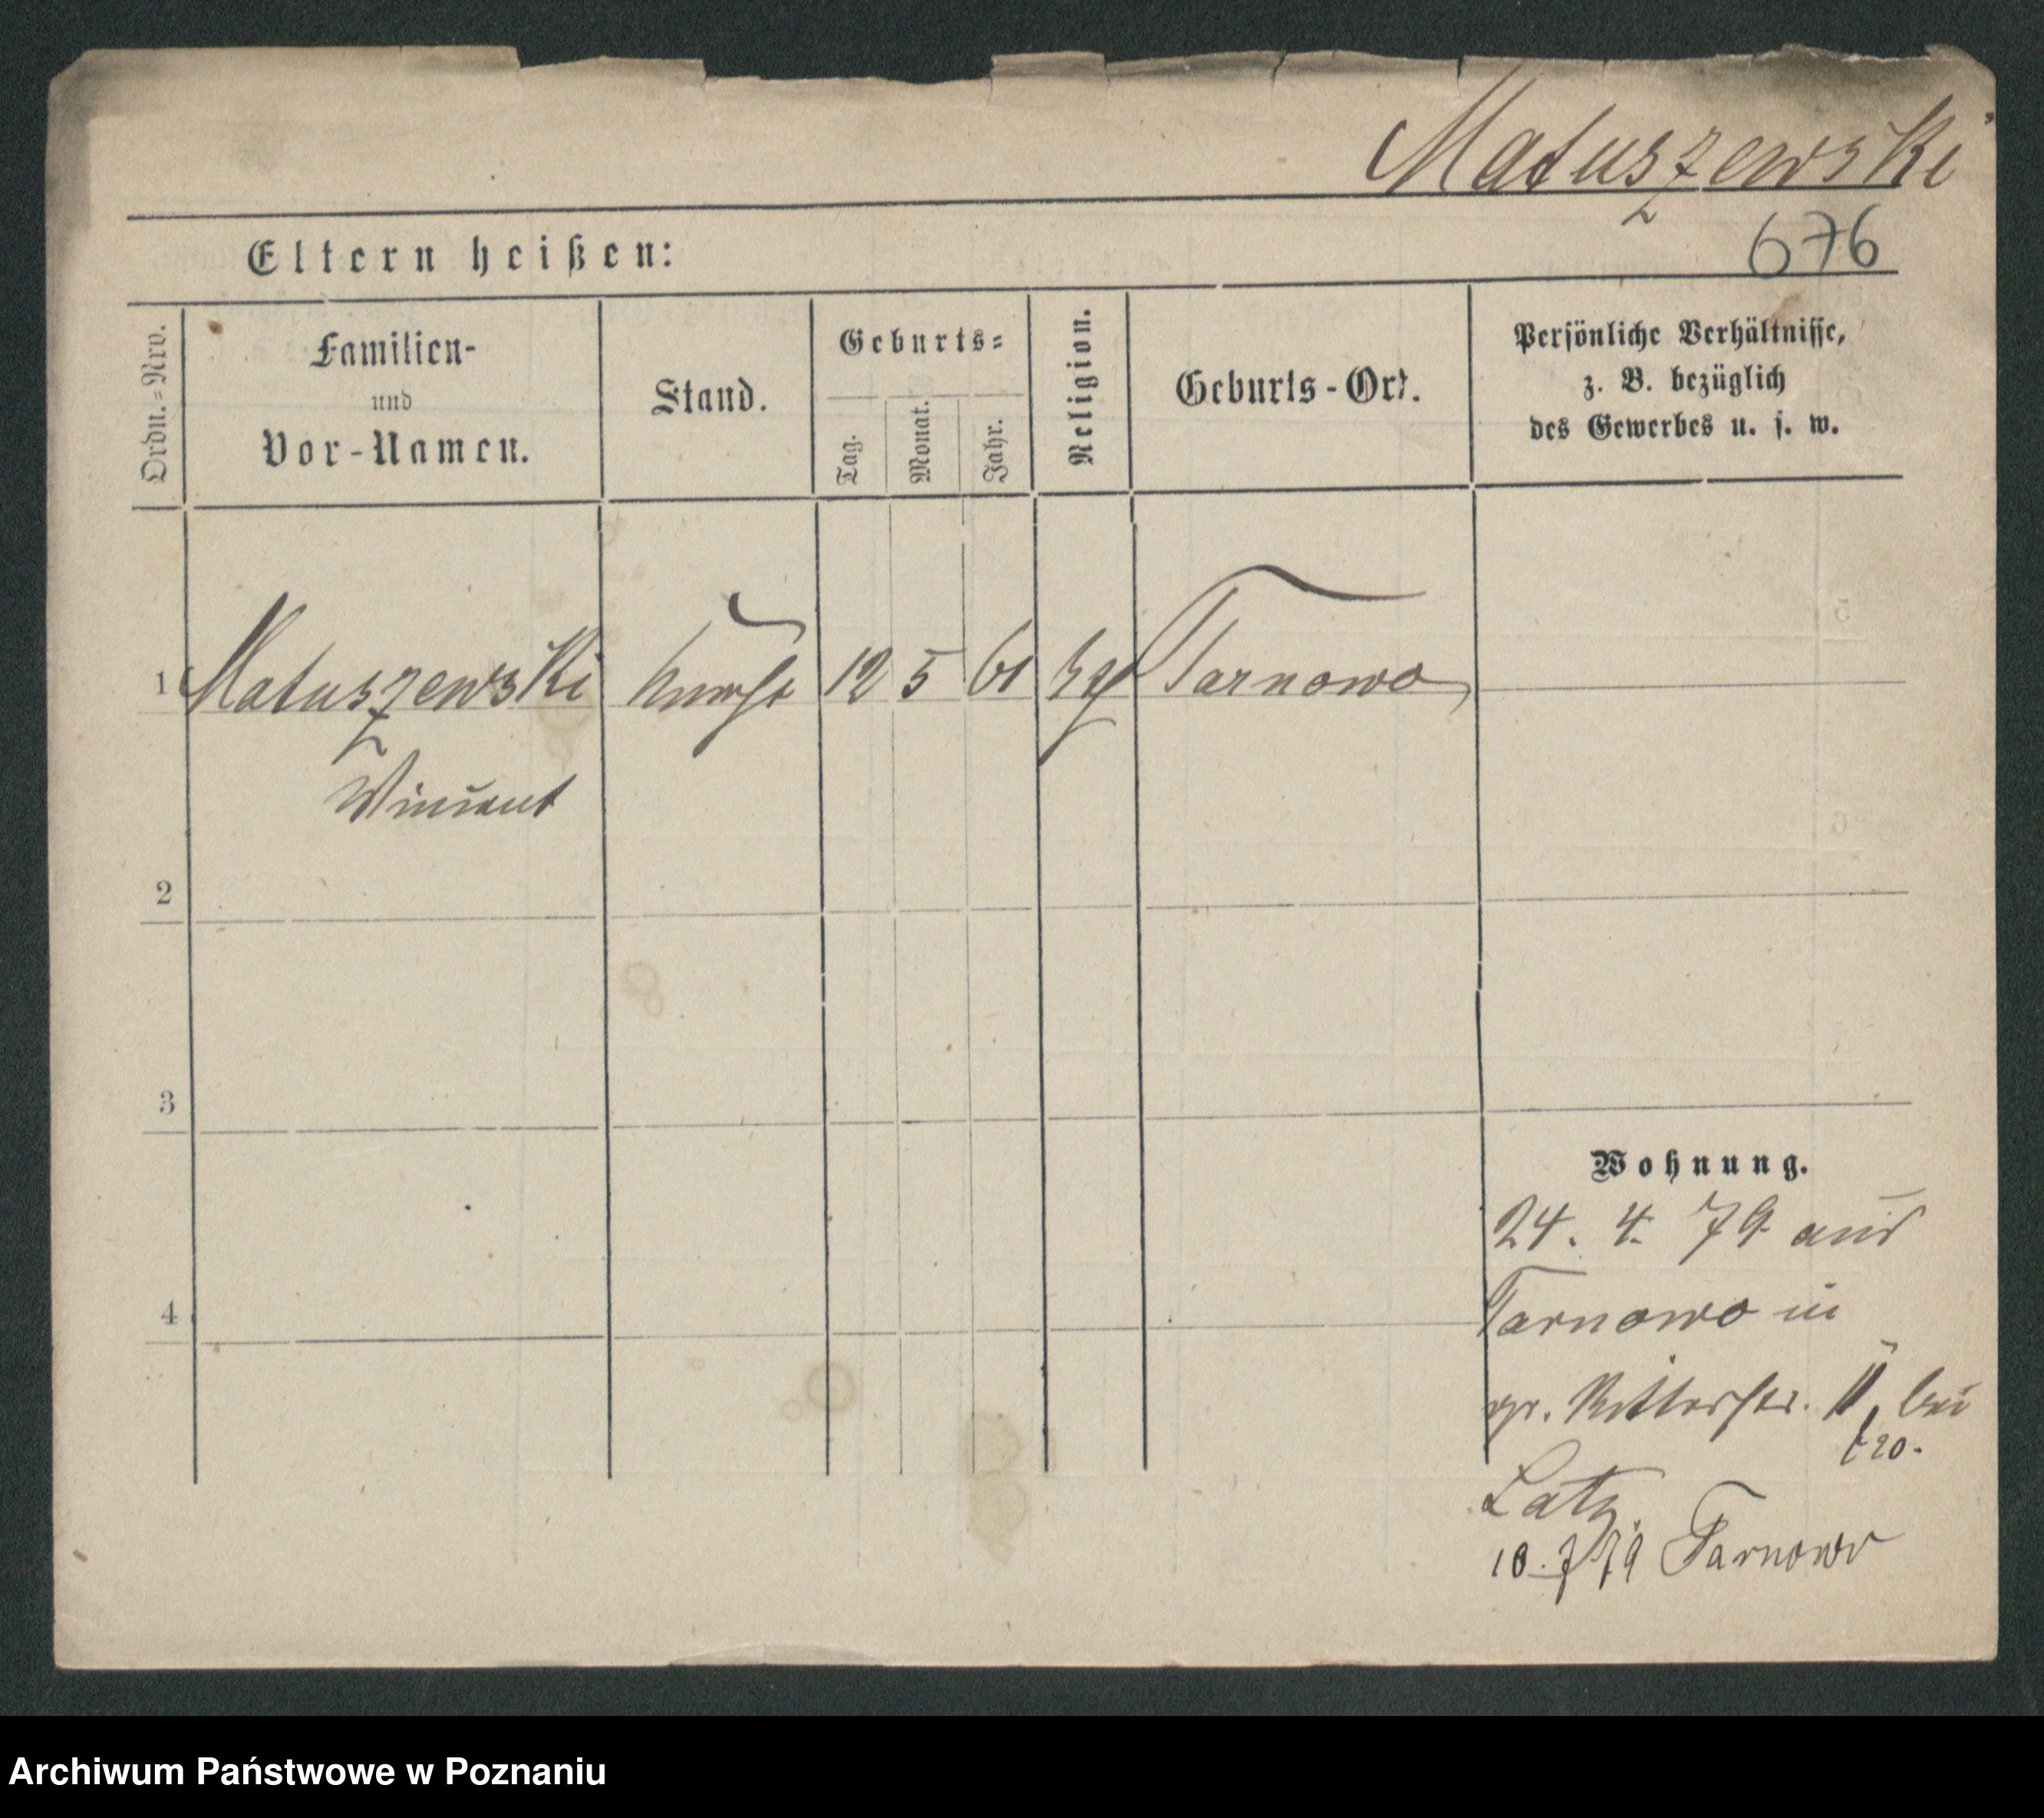 Matuszewski
676
Eltern heißen:
Ordn.-Nro.
Familien-
und
Vor-Namen.
Stand.
Geburts-
Tag.
Monat.
Jahr.
Religion.
Geburts-Ort.
Persönliche Verhältnisse,
z. B. bezüglich
des Gewerbes u. s. w.
1 Matuszewski Knecht 12 5 61 Tarnowo
Vincent
2
3
4
Wohnung.
24. 4. 79 aus
Tarnowo in
gr. Ritterstr. 11 bei
Latz.
10. 7 79 Tarnowo
Archiwum Państwowe w Poznaniu